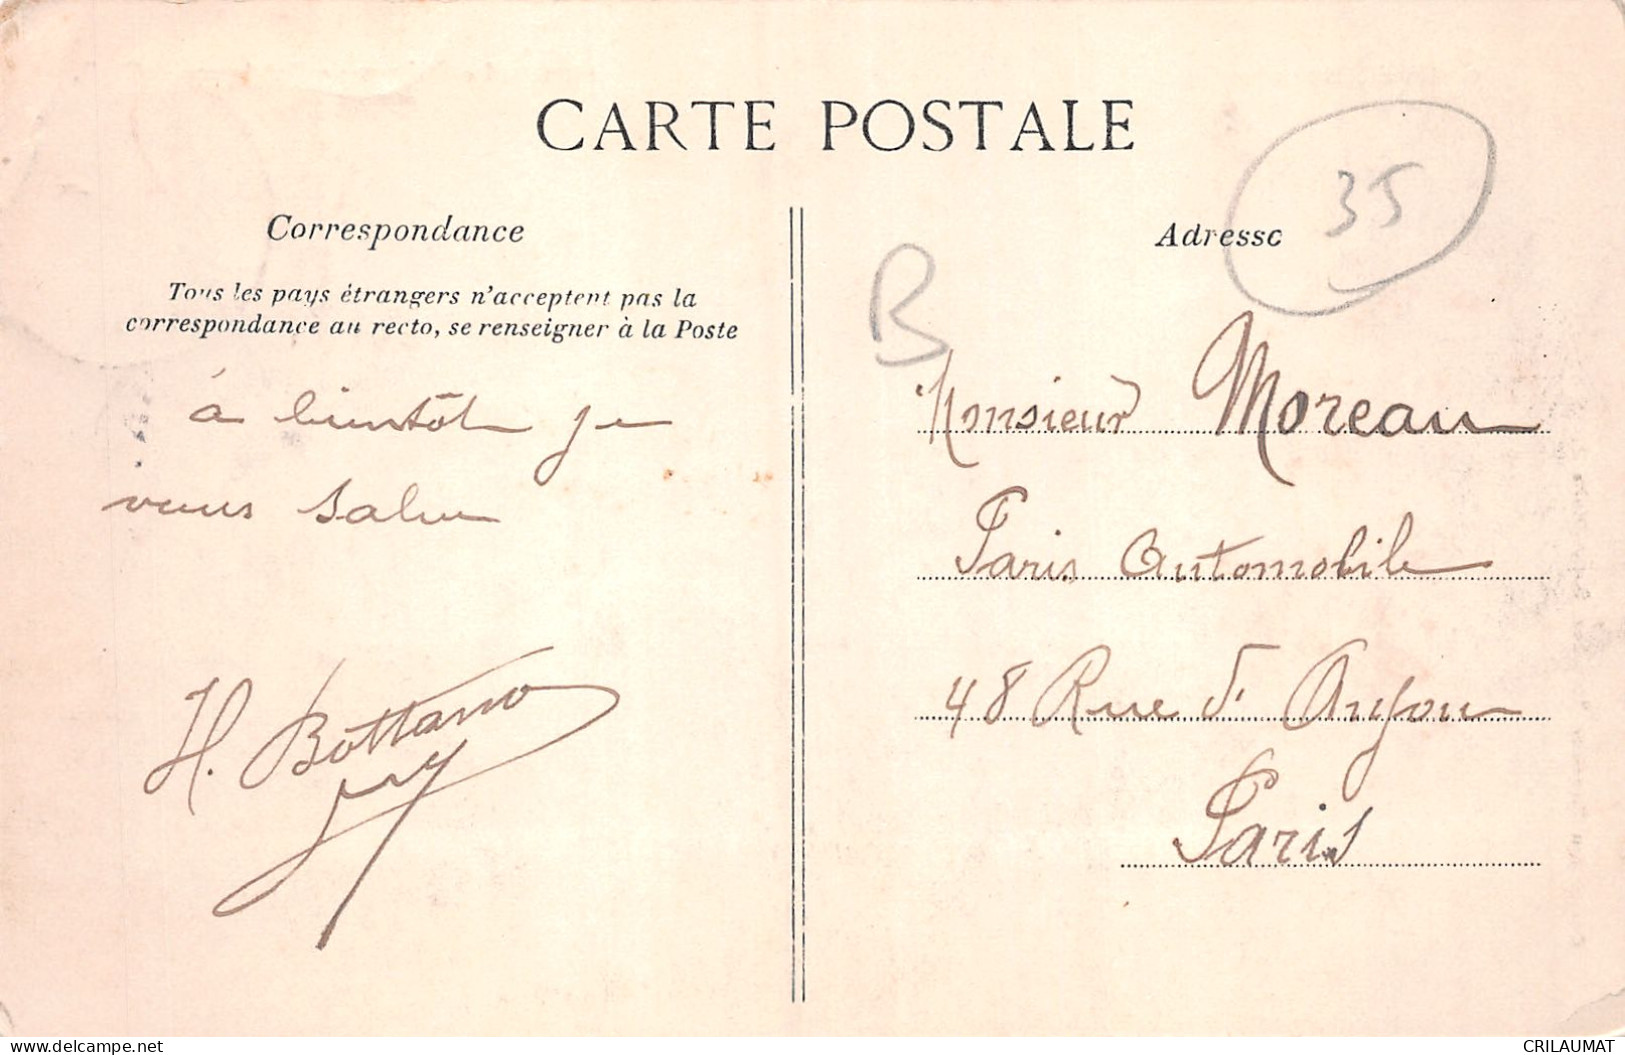 CARTE POSTALE
35
Correspondance
Tous les pays étrangers n'acceptent pas la
correspondance au recto, se renseigner à la Poste
à bientôt je
vous salue
H. Bottano
B
Adresse
Monsieur Moreau
Paris Automobile
48 Rue d'Anjou
Paris
www.delcampe.net
CRILAUMAT